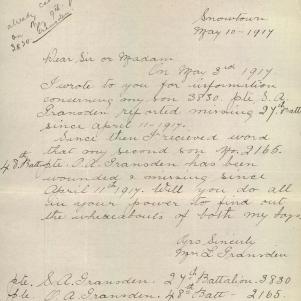 already
on May 9th
3830
Snowtown
May 10-1917
Dear Sir or Madam
On May 3rd 1917
I wrote to you for information
concerning my son 3830. pte. S. A.
Gransden reported missing 27th Batt
since April 11-1917.
Since then I received word
that my second son No. 2165.
48th Batt pte. O.A. Gransden has been
wounded & missing since
April 11th 1917. Will you do all
in your power to find out
the wheaeabouts of both my boys
Yrs Sincerly
Mrs L Gransden
pte. S. A. Gransden. 27th Battalion. 3830
pte O. A. Gransden. 48th Batt - 2165.